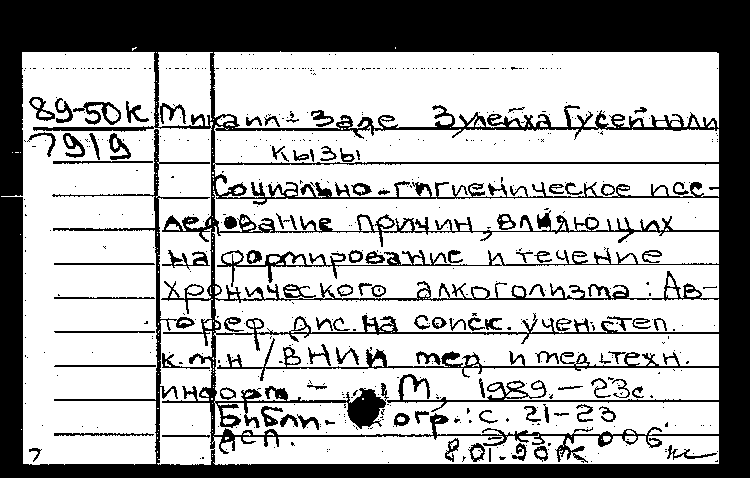 89-50к Микаил-Заде Зулейха Гусейнали
7919 кызы
Социально-гигиеническое исс-
ледование причин, влияющих
на формирование и течение
хронического алкоголизма: Ав-
тореф. дис. на соиск. учен. степ.
к.м.н / ВНИИ мед. и мед.-техн.
информ. - М., 1989. - 23с.
Библи- огр.: с. 21-23
Экз. № 006.
8.01.90